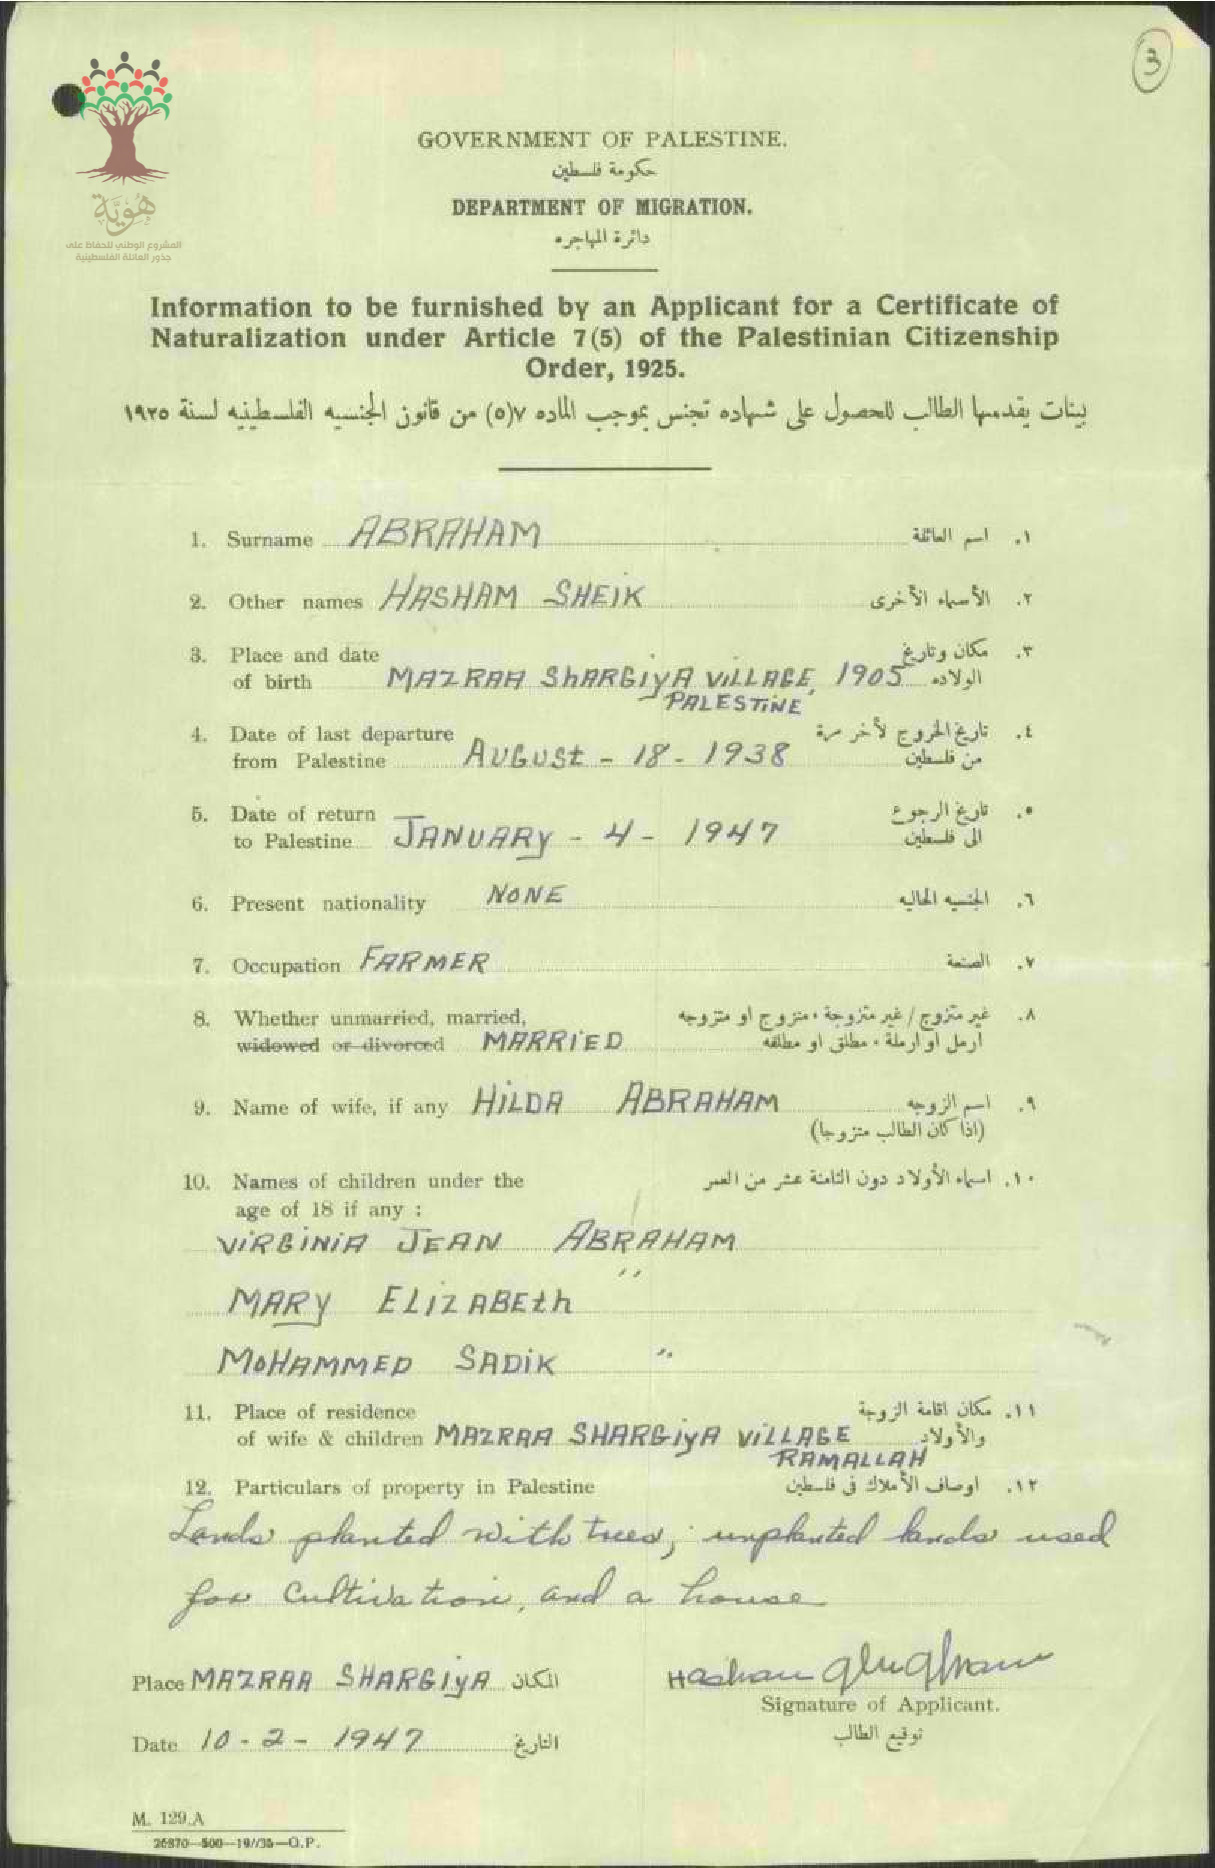 3
هُوِيَّة
المشروع الوطني للحفاظ على
جذور العائلة الفلسطينية
GOVERNMENT OF PALESTINE.
حكومة فلسطين
DEPARTMENT OF MIGRATION.
دائرة المهاجره
Information to be furnished by an Applicant for a Certificate of
Naturalization under Article 7(5) of the Palestinian Citizenship
Order, 1925.
بينات يقدمها الطالب للحصول على شهاده تجنس بموجب الماده ٧(٥) من قانون الجنسيه الفلسطينيه لسنة ١٩٢٥
1. Surname ABRAHAM ١. اسم العائلة
2. Other names HASHAM SHEIK ٢. الأسماء الأخرى
3. Place and date ٣. مكان وتاريخ
of birth MAZRAA ShARGiyA ViLLAGE, 1905 الولاده
PALESTiNE
4. Date of last departure ٤. تاريخ الخروج لأخر مرة
from Palestine AUGUSt - 18 - 1938 من فلسطين
5. Date of return ٥. تاريخ الرجوع
to Palestine JANUARy - 4 - 1947 الى فلسطين
6. Present nationality NONE ٦. الجنسيه الحاليه
7. Occupation FARMER ٧. الصنعة
8. Whether unmarried, married, ٨. غير متزوج / غير متزوجة ، متزوج او متزوجه
widowed or divorced MARRiED ارمل او ارملة ، مطلق او مطلقه
9. Name of wife, if any HiLDA ABRAHAM ٩. اسم الزوجه
(اذا كان الطالب متزوجا)
10. Names of children under the ١٠. اسماء الأولاد دون الثامنة عشر من العمر
age of 18 if any :
ViRGiNiA JEAN ABRAHAM
MARy ELiZABEth "
MOHAMMED SADiK "
11. Place of residence ١١. مكان اقامة الزوجة
of wife & children MAZRAA SHARGiyA ViLLAGE والأولاد
RAMALLAH
12. Particulars of property in Palestine ١٢. اوصاف الأملاك في فلسطين
Lands planted with trees; unplanted lands used
for cultivation, and a house
Place MAZRAA SHARGiyA المكان
Signature of Applicant.
توقيع الطالب
Date 10 - 2 - 1947 التاريخ
M. 129.A